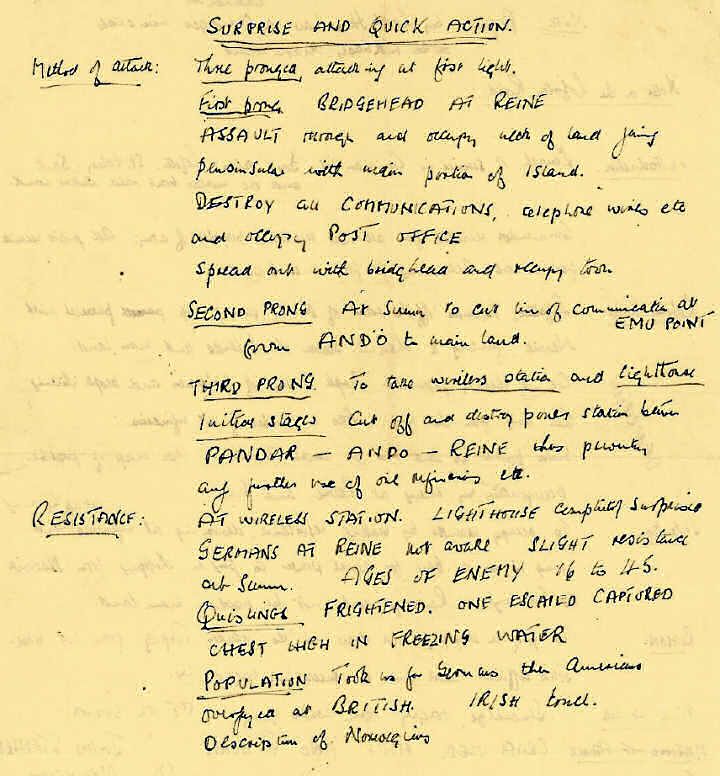 SURPRISE AND QUICK ACTION.
Method of attack: Three pronged, attacking at first light.
First prong BRIDGEHEAD AT REINE
ASSAULT through and occupy neck of land joing
Peninsular with main portion of Island.
DESTROY all COMMUNICATIONS, telephone wires etc
and occupy POST OFFICE
Spread out with bridghead and occupy town
SECOND PRONG At Sunn to cut line of communication at
EMU POINT
from ANDO to main land.
THIRD PRONG. To take wireless station and lighthouse
Initial stages Cut off and destroy power station between
PANDAR – ANDO – REINE thus preventing
any further use of oil refineries etc.
RESISTANCE: AT WIRELESS STATION. LIGHTHOUSE completely surprised
GERMANS AT REINE not aware SLIGHT resistance
at Sunn. AGES OF ENEMY 16 to 45.
QUISLINGS FRIGHTENED. ONE ESCAPED CAPTURED
CHEST HIGH IN FREEZING WATER
POPULATION Took us for Germans then Americans
overjoyed at BRITISH. IRISH touch.
Description of Norwegians